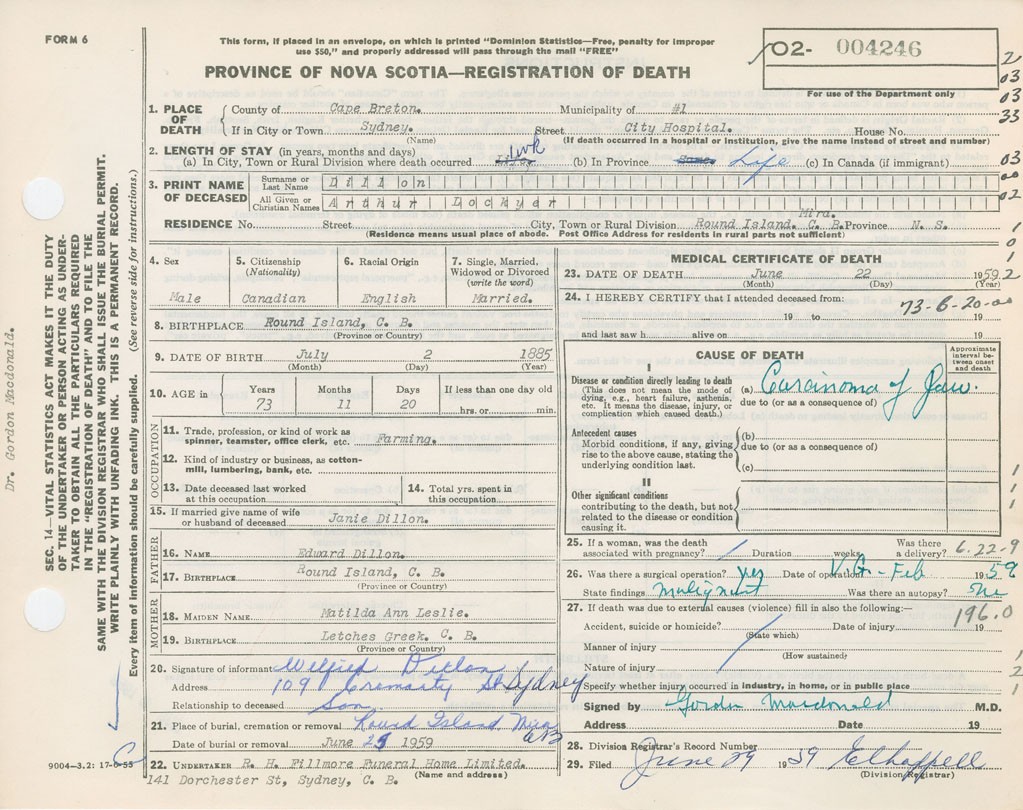 FORM 6
This form, if placed in an envelope, on which is printed "Dominion Statistics—Free, penalty for improper
use $50," and properly addressed will pass through the mail "FREE"
PROVINCE OF NOVA SCOTIA—REGISTRATION OF DEATH
02- 004246
For use of the Department only
2
03
03
33
03
00
02
1
0
1
1. PLACE OF DEATH
County of Cape Breton. Municipality of #1
If in City or Town Sydney. Street City Hospital. House No.
(Name) (If death occurred in a hospital or institution, give the name instead of street and number)
2. LENGTH OF STAY (in years, months and days)
(a) In City, Town or Rural Division where death occurred 1 wk (b) In Province Life (c) In Canada (if immigrant)
3. PRINT NAME OF DECEASED
Surname or Last Name Dillon
All Given or Christian Names Arthur Lockyer
Mira.
RESIDENCE No. Street City, Town or Rural Division Round Island. C. B. Province N. S.
(Residence means usual place of abode. Post Office Address for residents in rural parts not sufficient)
4. Sex
Male
5. Citizenship
(Nationality)
Canadian
6. Racial Origin
English
7. Single, Married,
Widowed or Divorced
(write the word)
Married.
8. BIRTHPLACE Round Island, C. B.
(Province or Country)
9. DATE OF BIRTH July 2 1885
(Month) (Day) (Year)
10. AGE in
Years 73
Months 11
Days 20
If less than one day old
hrs. or min.
OCCUPATION
11. Trade, profession, or kind of work as
spinner, teamster, office clerk, etc. Farming.
12. Kind of industry or business, as cotton-
mill, lumbering, bank, etc.
13. Date deceased last worked
at this occupation
14. Total yrs. spent in
this occupation
15. If married give name of wife
or husband of deceased Janie Dillon.
FATHER
16. NAME Edward Dillon.
17. BIRTHPLACE Round Island, C. B.
(Province or Country)
MOTHER
18. MAIDEN NAME Matilda Ann Leslie.
19. BIRTHPLACE Letches Greek. C. B.
(Province or Country)
20. Signature of informant Wilfred Dillon
Address 109 Cromarty St Sydney
Relationship to deceased Son.
21. Place of burial, cremation or removal Round Island Mira CB
Date of burial or removal June 25 1959
22. UNDERTAKER R. H. Fillmore Funeral Home Limited.
141 Dorchester St, Sydney, C. B. (Name and address)
9004-3.2: 17-6-55
MEDICAL CERTIFICATE OF DEATH
23. DATE OF DEATH June 22 1959.2
(Month) (Day) (Year)
24. I HEREBY CERTIFY that I attended deceased from:
73-6-20-00
19 to 19
and last saw h alive on 19
CAUSE OF DEATH
Approximate
interval be-
tween onset
and death
I
Disease or condition directly leading to death
(This does not mean the mode of
dying, e.g., heart failure, asthenia,
etc. It means the disease, injury, or
complication which caused death.)
(a) Carcinoma of Jaw.
due to (or as a consequence of)
Antecedent causes
Morbid conditions, if any, giving
rise to the above cause, stating the
underlying condition last.
(b)
due to (or as a consequence of)
(c)
II
Other significant conditions
contributing to the death, but not
related to the disease or condition
causing it.
1
1
1
25. If a woman, was the death
associated with pregnancy? Duration weeks Was there
a delivery? 6-22-9
26. Was there a surgical operation? yes Date of operation Feb 1959
State findings malignant Was there an autopsy? no
27. If death was due to external causes (violence) fill in also the following:—
196.0
Accident, suicide or homicide? Date of injury 19
(State which)
Manner of injury
(How sustained)
Nature of injury
Specify whether injury occurred in industry, in home, or in public place
1
2
1
Signed by Gordon Macdonald M.D.
Address Date 19
28. Division Registrar's Record Number
29. Filed June 29 1959 E Chappell
(Division Registrar)
Dr. Gordon Macdonald.
SEC. 14—VITAL STATISTICS ACT MAKES IT THE DUTY
OF THE UNDERTAKER OR PERSON ACTING AS UNDER-
TAKER TO OBTAIN ALL THE PARTICULARS REQUIRED
IN THE "REGISTRATION OF DEATH" AND TO FILE THE
SAME WITH THE DIVISION REGISTRAR WHO SHALL ISSUE THE BURIAL PERMIT.
WRITE PLAINLY WITH UNFADING INK. THIS IS A PERMANENT RECORD.
Every item of information should be carefully supplied. (See reverse side for instructions.)